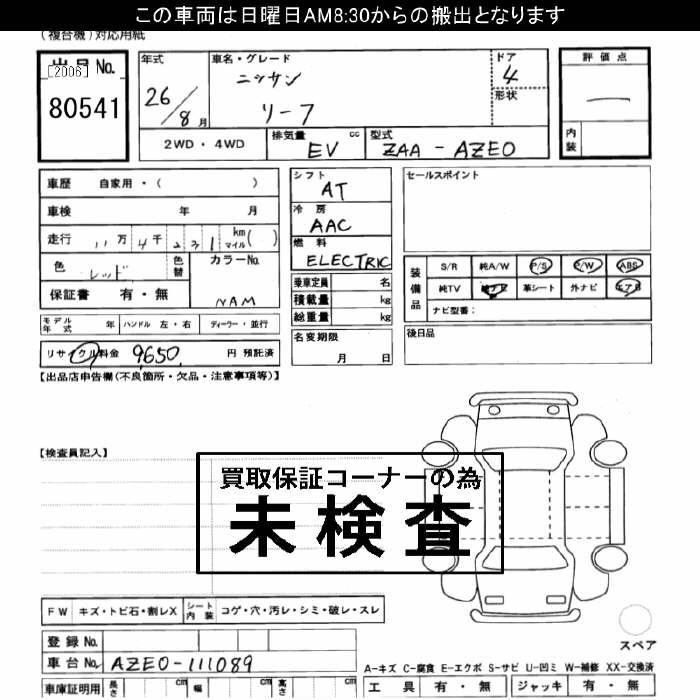 この車両は日曜日AM8:30からの搬出となります
(複合機)対応用紙
出品No.
[2006]
80541
年式
26/8月
車名・グレード
ニッサン
リーフ
ドア
4
形状
評価点
—
内装
2WD・4WD
排気量 cc
EV
型式
ZAA-AZE0
車歴 自家用・( )
車検 年 月
走行 11万4千231 km マイル( )
色 レッド 色替 カラーNo.
NAM
保証書 有・無
シフト
AT
冷房
AAC
燃料
ELECTRIC
乗車定員 名
積載量 kg
総重量 kg
セールスポイント
装備品
S/R 純A/W P/S P/W ABS
純TV 純ナビ 革シート 外ナビ エアB
ナビ型番:
モデル年式 年 ハンドル 左・右 ディーラー・並行
名変期限
月 日
後日品
リサイクル料金 9650 円 預託済
【出品店申告欄(不良箇所・欠品・注意事項等)】
【検査員記入】
買取保証コーナーの為
未検査
FW キズ・トビ石・割レX シート内装 コゲ・穴・汚レ・シミ・破レ・スレ
登録No.
車台No. AZE0-111089
車庫証明用 長さ cm 幅 cm 高さ cm
スペア
A-キズ C-腐食 E-エクボ S-サビ U-凹ミ W-補修 XX-交換済
工具 有・無 ジャッキ 有・無